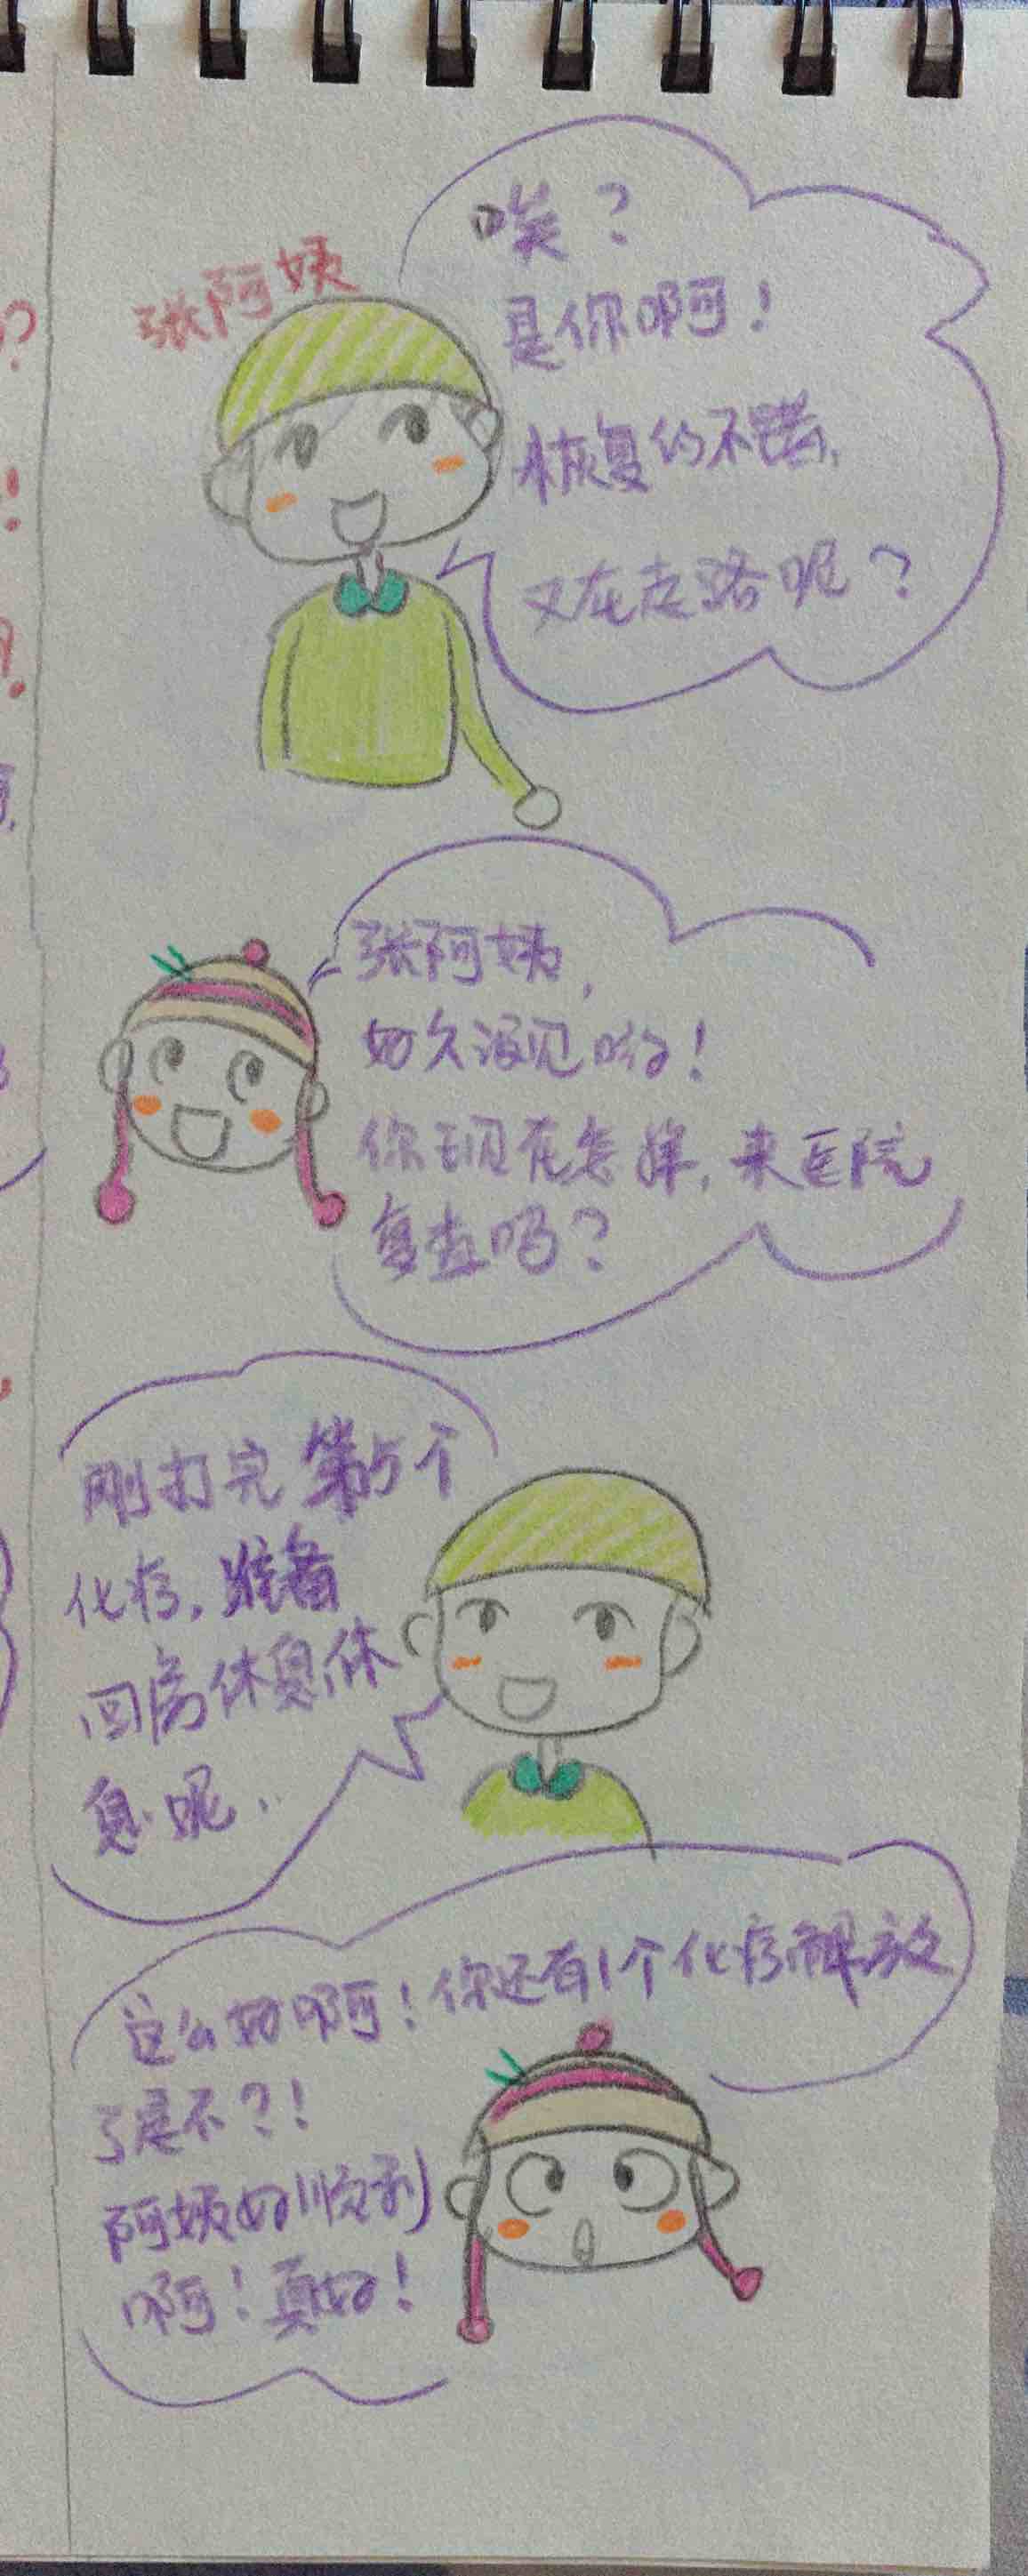 张阿姨
唉？
是你啊！
恢复的不错，
又在走路呢？
张阿姨，
好久没见哟！
你现在怎样，来医院
复查吗？
刚打完第5个
化疗，准备
回房休息休
息呢..
这么好啊！你还有1个化疗解放
了是不？！
阿姨好顺利
啊！真好！